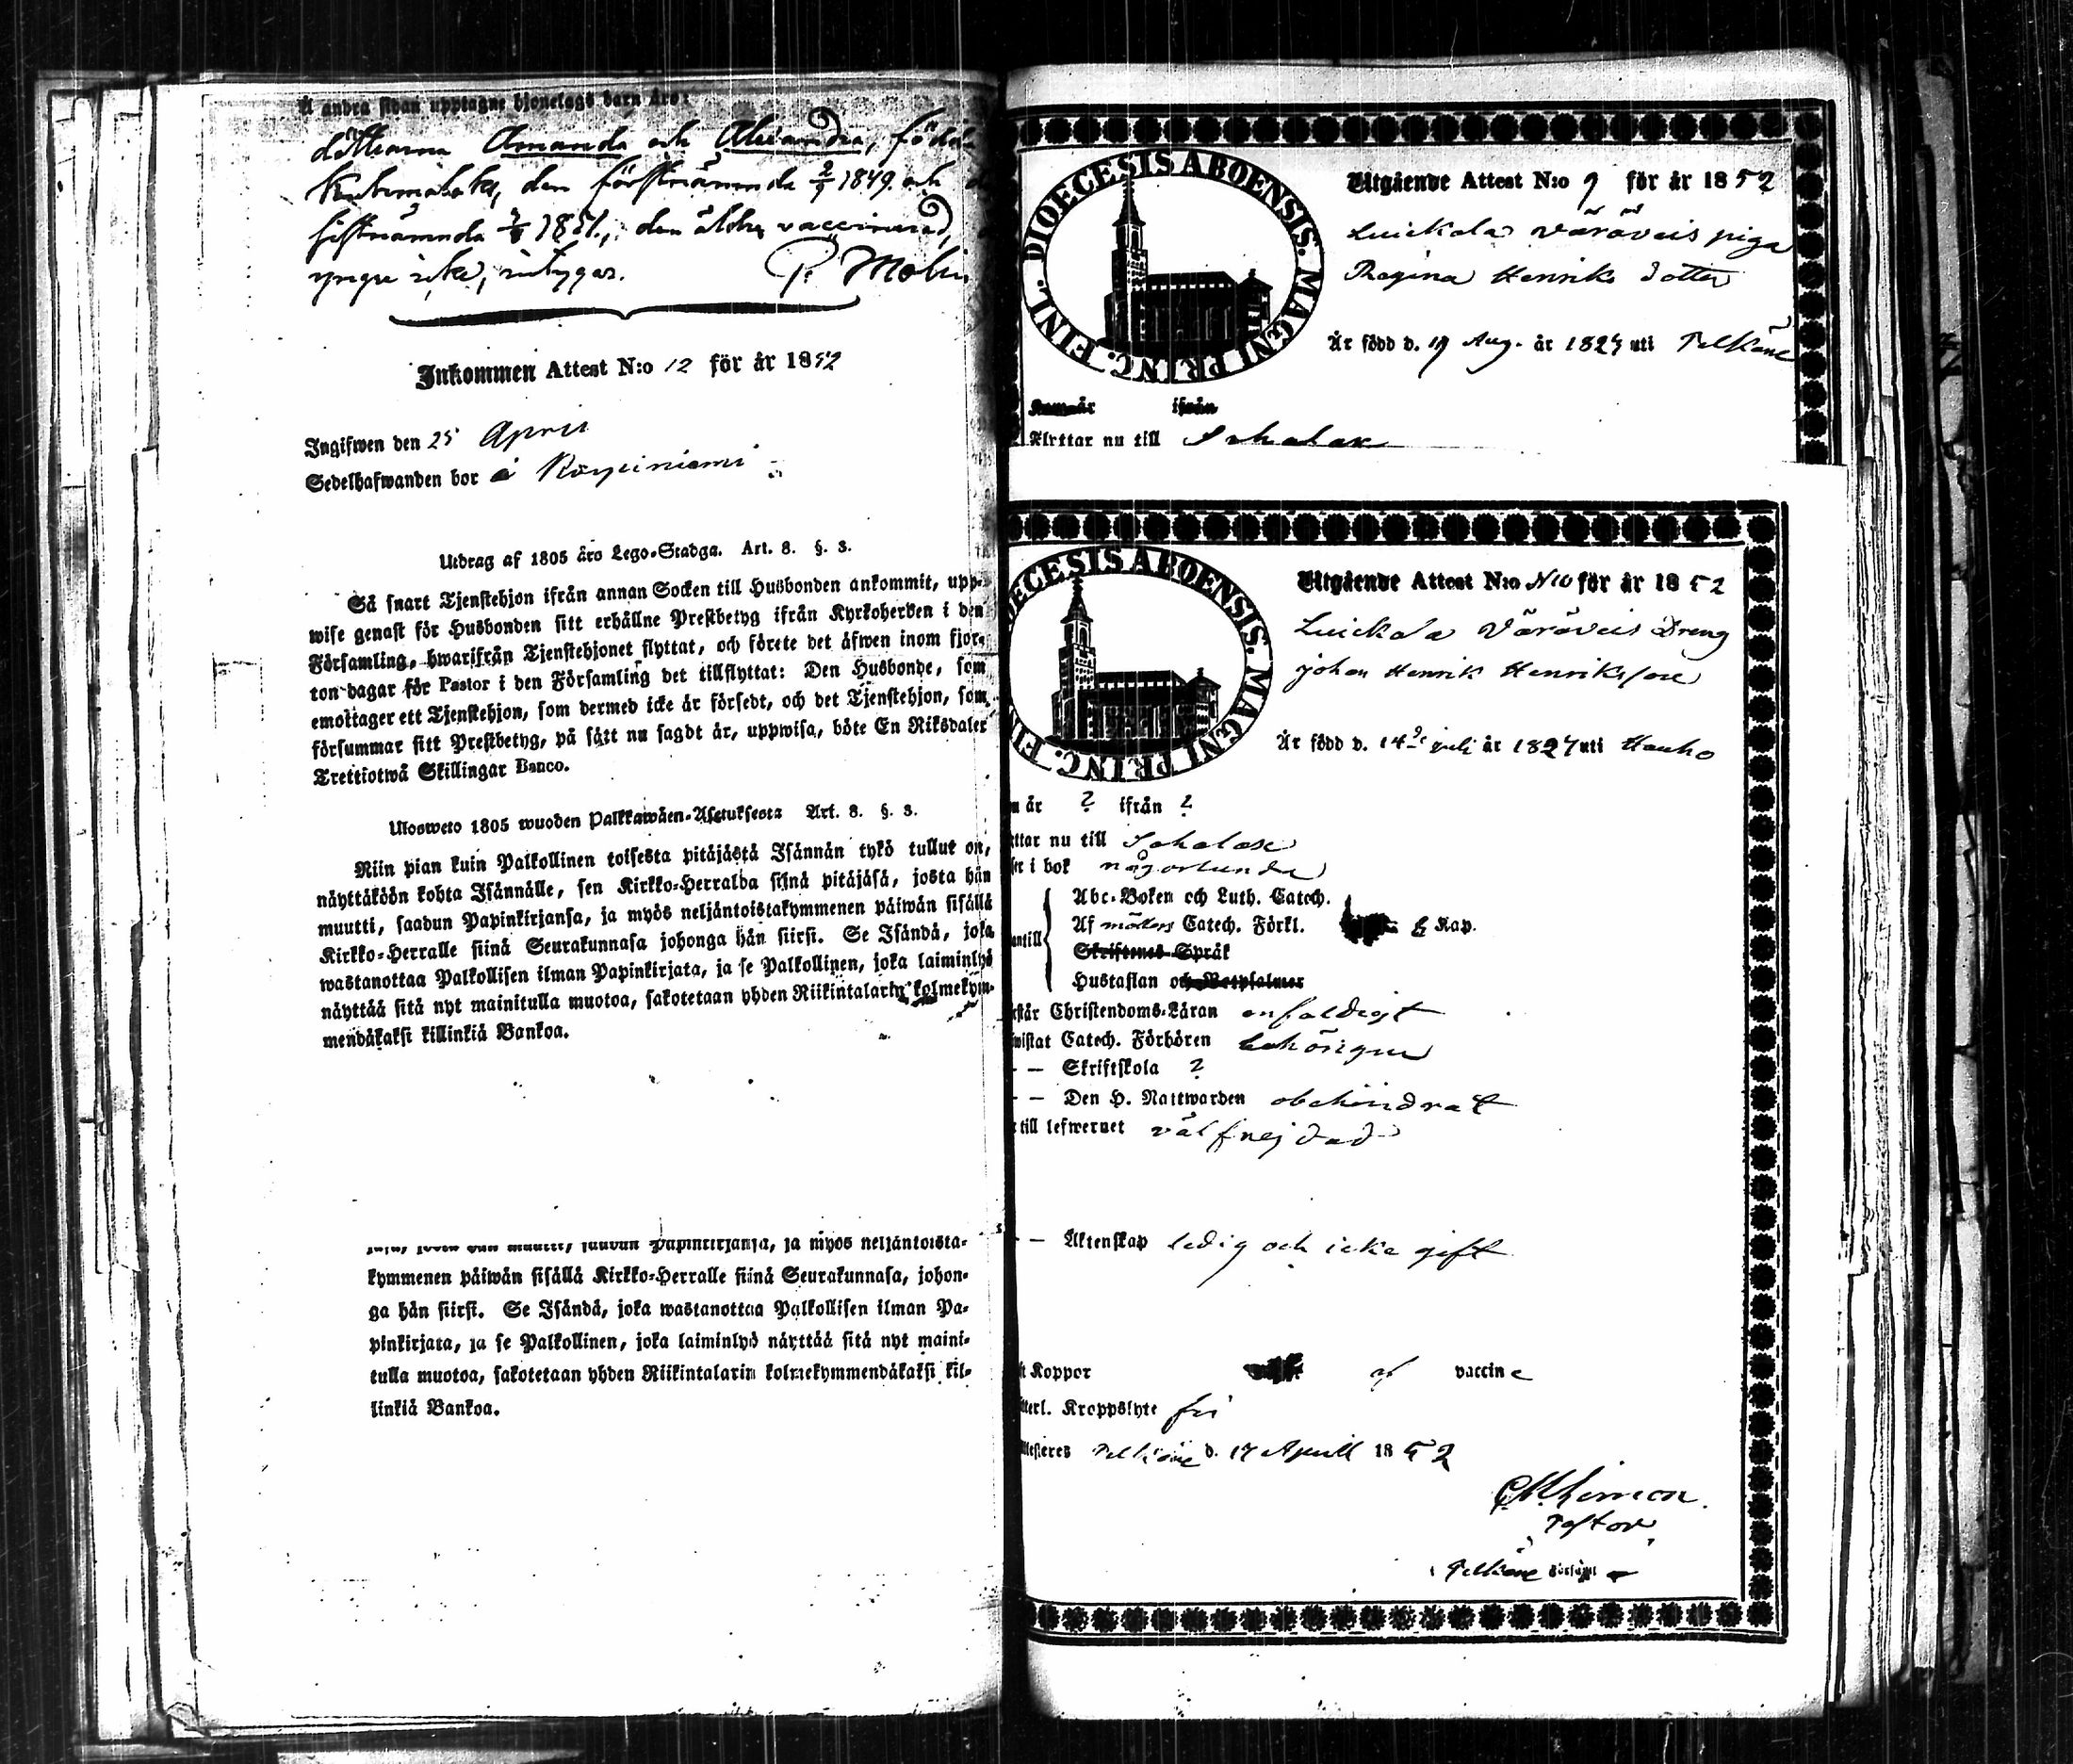 Å andra sidan upptagne hjonelags barn äro:
döttrarna Amanda och Alexandra, födda
den förstnämnda 2/9 1849 och
sistnämnda 1851, den äldre vaccinerad,
yngre icke, intygar. P. Molin
Inkommen Attest N:o 12 för år 1852
Ingifwen den 25 April
Sedelhafwanden bor å
Utdrag af 1805 års Lego-Stadga. Art. 8. §. 3.
Så snart Tjenstehjon ifrån annan Socken till Husbonden ankommit, upp-
wise genast för Husbonden sitt erhållne Prestbetyg ifrån Kyrkoherden i den
Församling, hwarifrån Tjenstehjonet flyttat, och förete det äfwen inom fjor-
ton dagar för Pastor i den Församling det tillflyttat: Den Husbonde, som
emottager ett Tjenstehjon, som dermed icke är försedt, och det Tjenstehjon, som
försummar sitt Prestbetyg, på sätt nu sagdt är, uppwisa, böte En Riksdaler
Trettiotwå Skillingar Banco.
Ulosweto 1805 wuoden Palkkawäen-Asetuksesta Art. 8. §. 3.
Niin pian kuin Palkollinen toisesta pitäjästä Isännän tykö tullut on,
näyttäköön kohta Isännälle, sen Kirkko-Herralda siinä pitäjäsä, josta hän
muutti, saadun Papinkirjansa, ja myös neljäntoistakymmenen päiwän sisällä
Kirkko-Herralle siinä Seurakunnasa johonga hän siirsi. Se Isändä, joka
wastanottaa Palkollisen ilman Papinkirjata, ja se Palkollinen, joka laiminlyö
näyttää sitä nyt mainitulla muotoa, sakotetaan yhden Riikintalarin kolmekym-
mendäkaksi killinkiä Bankoa.
josta hän muutti, saadun Papinkirjansa, ja myös neljäntoista-
kymmenen päiwän sisällä Kirkko-Herralle siinä Seurakunnasa, johon-
ga hän siirsi. Se Isändä, joka wastanottaa Palkollisen ilman Pa-
pinkirjata, ja se Palkollinen, joka laiminlyö näyttää sitä nyt maini-
tulla muotoa, sakotetaan yhden Riikintalarin kolmekymmendäkaksi kil-
linkiä Bankoa.
DIOECESIS ABOENSIS. MAGNI PRINC. FINL.
Utgående Attest N:o 9 för år 1852
Luickala Väräväis piga
Regina Henriks dotter
Är född d. 19 Aug. år 1827 uti Pelkäne
Kom år ifrån
Flyttar nu till Sahalax
DIOECESIS ABOENSIS. MAGNI PRINC. FI
Utgående Attest N:o N10 för år 1852
Luickala Väräväis Dreng
Johan Henrik Henriksson
Är född d. 14de Juli år 1827 uti Hauho
m år ? ifrån ?
yttar nu till Sahalax
ser i bok någorlunda
antill
Abc-Boken och Luth. Catech.
Af mölers Catech. Förkl. 6 Kap.
Skriftenes Språk
Hustaflan och Botpsalmer
rstår Christendoms-Läran enfaldigt
wistat Catech. Förhören behörigen
– – Skriftskola ?
– – Den H. Nattwarden obehindrat
till lefwernet välfrejdad
– – Äktenskap ledig och icke gift
ft Koppor af vaccine
tterl. Kroppslyte fri
ttesteres Pelkäne d. 17 April 1852
Pastor
i Pelkäne Församl